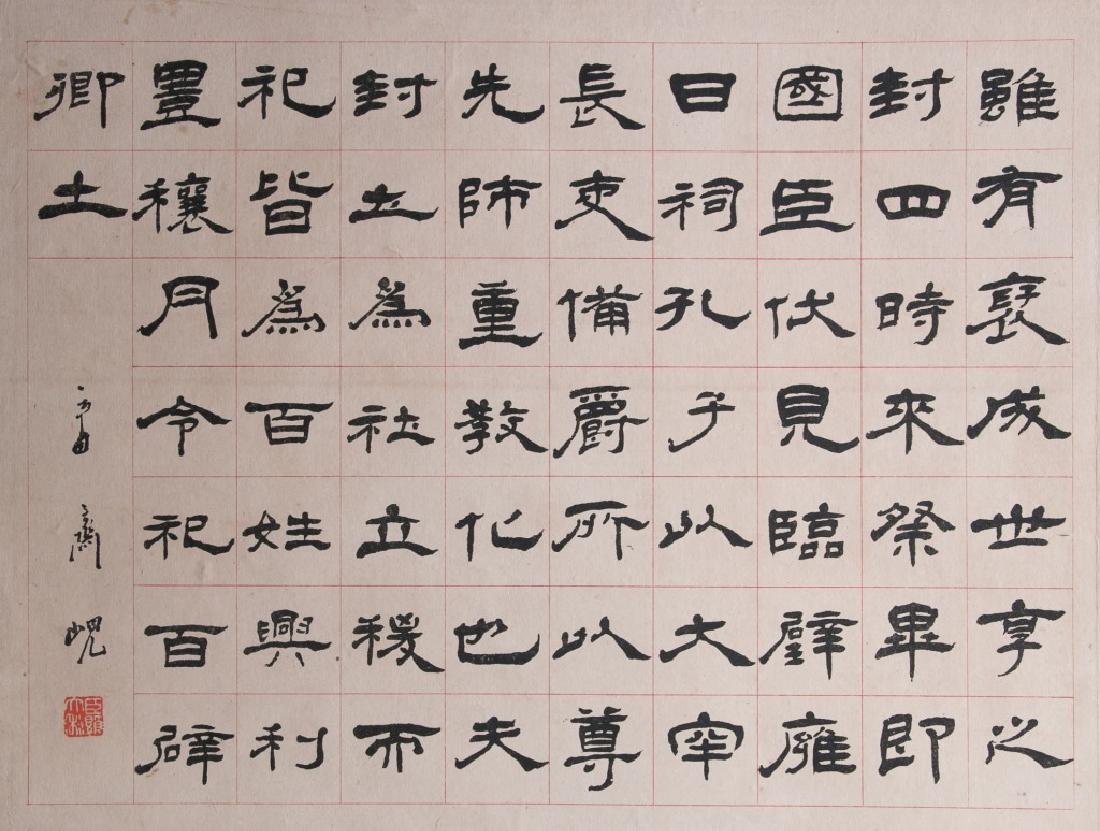 雖有褒成世享之
封四時來祭畢即
國臣伏見臨璧雍
日祠孔子以大牢
長吏備爵所以尊
先師重教化也夫
封土為社立稷而
祀皆為百姓興利
豐穰月令祀百辟
卿士
庸齋峴
臣顯大利